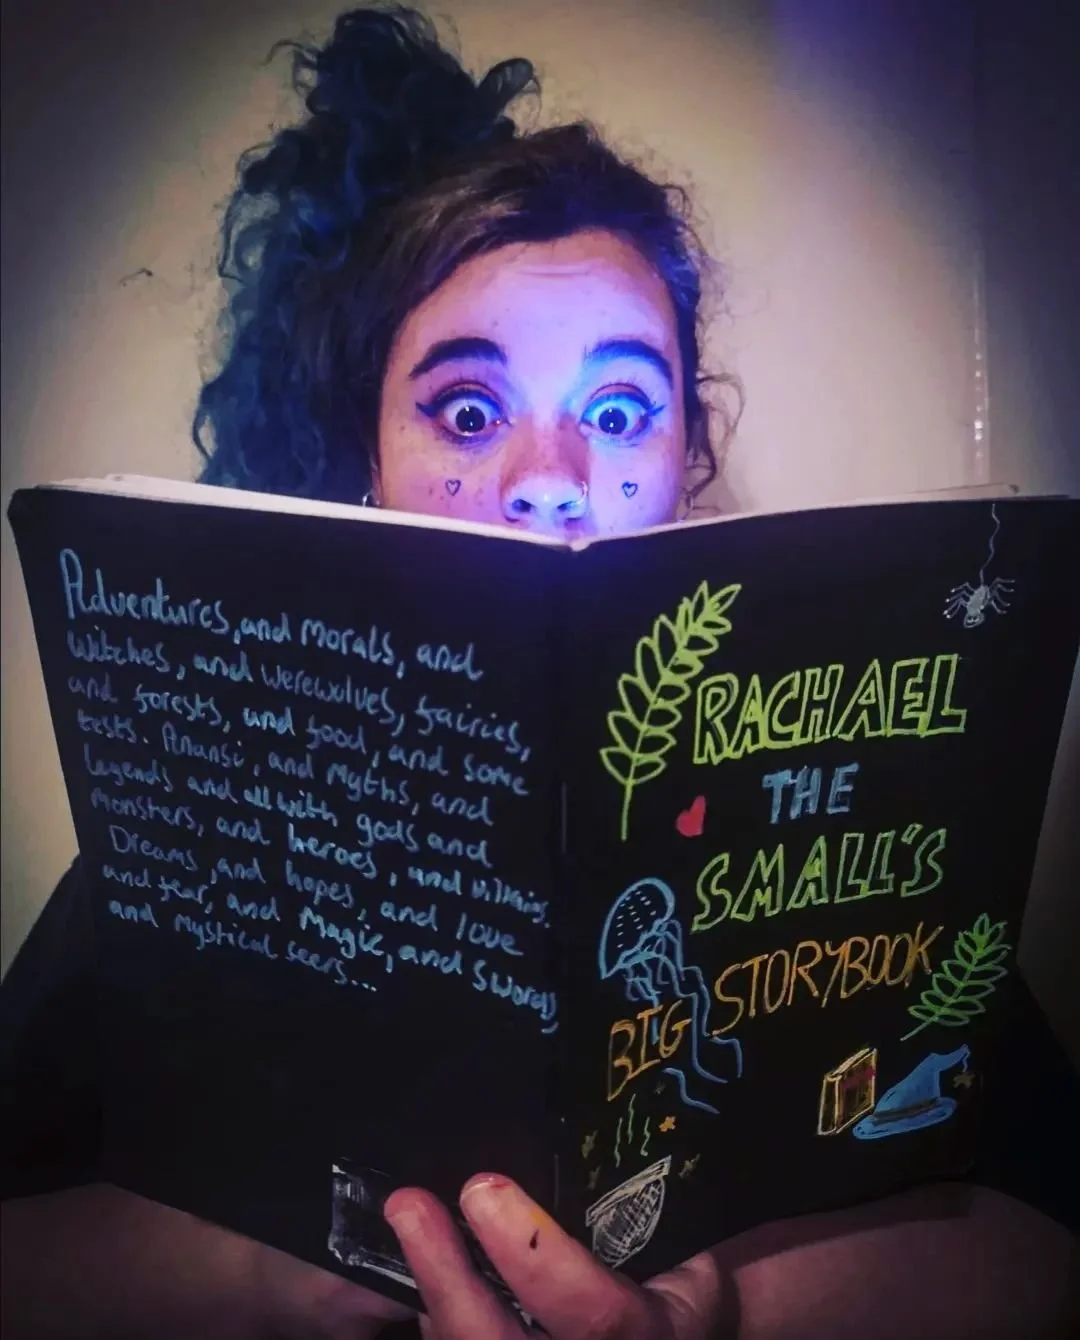 Adventures, and morals, and
witches, and werewolves, fairies,
and forests, and food, and some
tests. Anansi, and myths, and
legends and all with gods and
monsters, and heroes, and villains.
Dreams, and hopes, and love
and fear, and Magic, and swords,
and mystical seers...
RACHAEL
THE
SMALL'S
BIG STORYBOOK